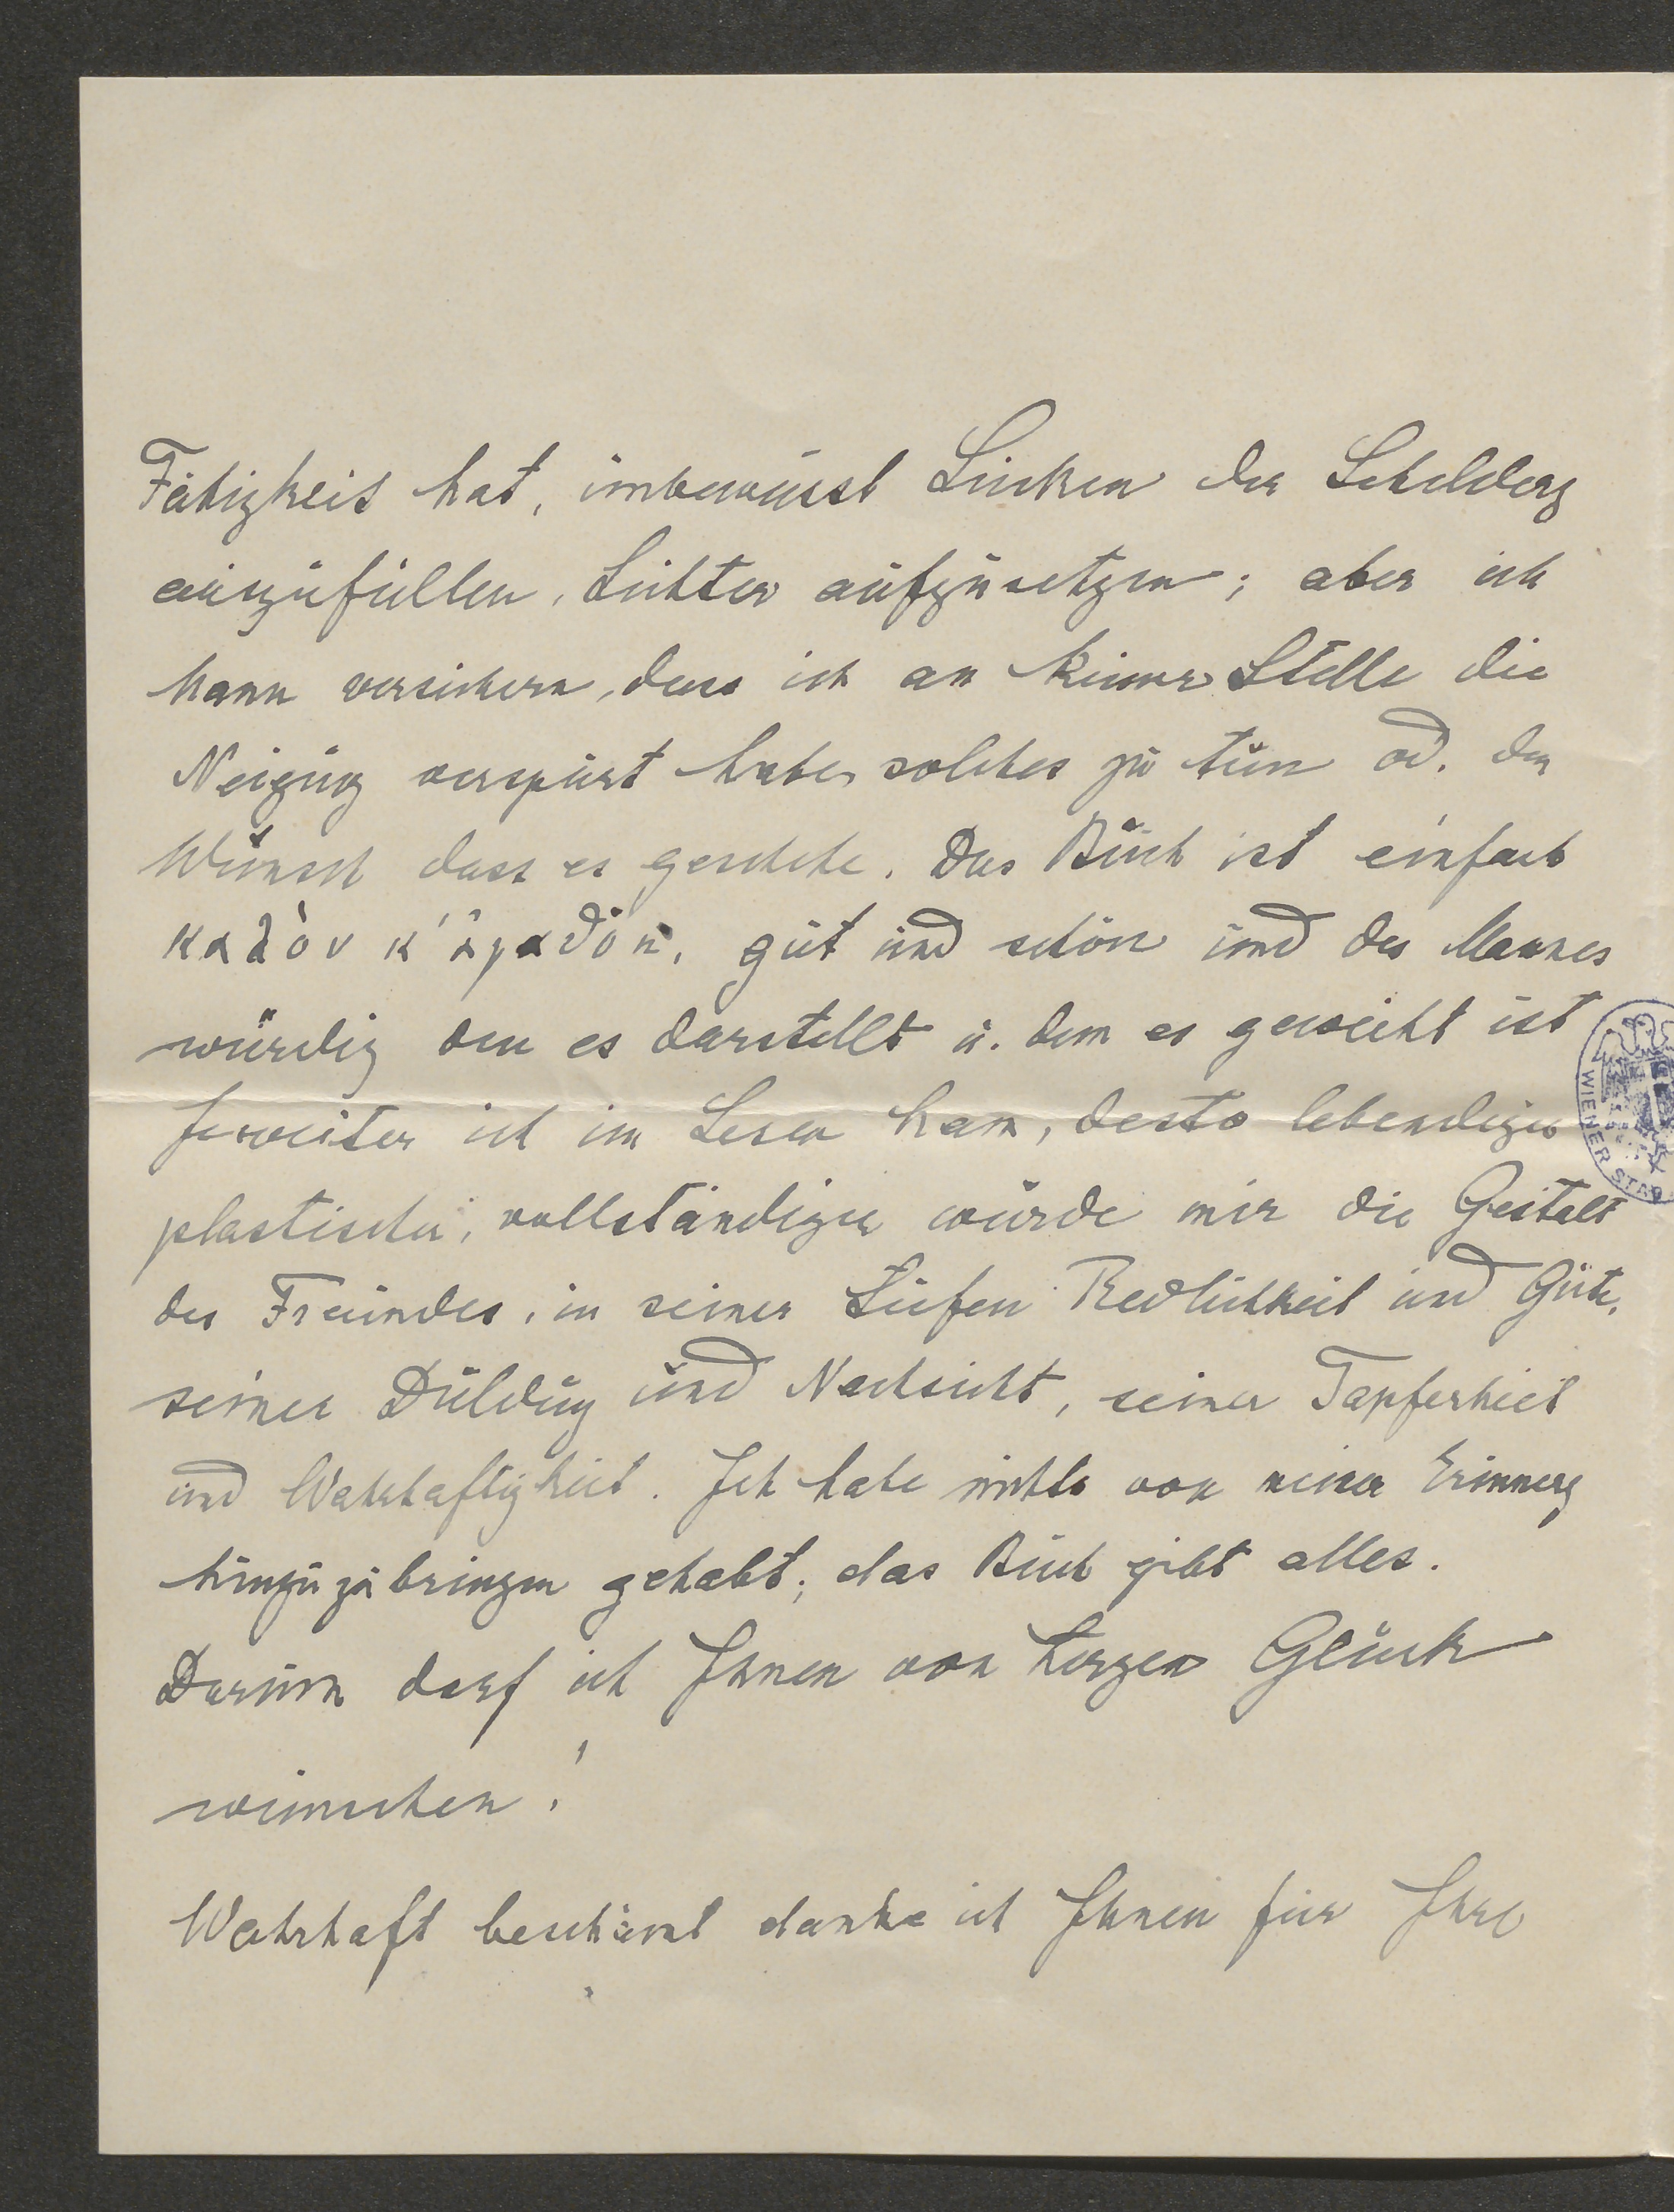 Fähigkeit hat, unbewusst Lücken der Schilderg
auszufüllen, Lichter aufzusetzen; aber ich
kann versichern, dass ich an keiner Stelle die
Neigung verspürt habe, solches zu tun od. den
Wunsch dass es geschehe. Das Buch ist einfach
καλὸν κ'ἀγαθόν, gut und schön und des Mannes
würdig den es darstellt u. dem es geweiht ist
Je weiter ich im Lesen kam, desto lebendiger
plastischer, vollständiger wurde mir die Gestalt
des Freundes, in seiner tiefen Redlichkeit und Güte,
seiner Duldung und Nachsicht, seiner Tapferkeit
und Wahrhaftigkeit. Ich habe nichts von meiner Erinnerg
hinzuzubringen gehabt; das Buch gibt alles.
Darum darf ich Ihnen von Herzen Glück
wünschen!
Wahrhaft beschämt danke ich Ihnen für Ihre
WIENER STAD